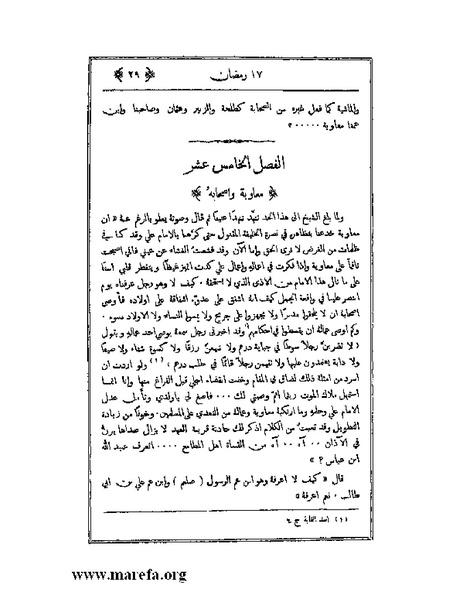 ١٧ رمضان ﴿ ٢٩ ﴾
والماشية كما فعل غيره من الصحابة كطلحة والزبير وعثمان وصاحبنا وابن
عمنا معاوية ٠٠٠٠٠ ؟
الفصل الخامس عشر
﴿ معاوية واصحابه ﴾
ولما بلغ الشيخ الى هذا الحد تنهد تنهدًا عميقًا ثم قال وصوته يعلو بالرغم عنه « ان
معاوية خدعنا بتظاهره في نصرة الخليفة المقتول حتى كرّهنا بالامام علي وقد كنا في
ظلمات من الغرض لا نرى الحق واما الآن وقد قشعت الغشاء عن عيني فاني اصبحت
ناقمًا على معاوية واذا فكرت في اعماله واعمال علي كدت اتميز غيظًا ويتفطر قلبي اسفًا
على ما نالى هذا الامام من الاذى الذي لا استحقه ٠ كيف لا وهو رجل عرفناه يوم
انتصر علينا في واقعة الجمل كيف انه اشفق على عدوّه اشفاقه على اولاده فأوصى
اصحابه ان لا يلحقوا مدبرًا ولا يجهزوا على جريح ولا يسوا النساء ولا الاولاد بسوء ٠
وكم اوصى عماله ان يقسطوا في احكامهم وقد اخبرني رجل سمعه يوصي احد عماله ويقول
« لا تضربنّ رجلاً سوطًا في جباية درهم ولا تبيعنّ رزقًا ولا كسوة شتاء ولا صيفًا
ولا دابة يعتملون عليها ولا تقيمن رجلاً قائمًا في طلب درهم » (١) ولو اردت ان
اسرد من امثلة ذلك لضاق بي المقام وخفت انقضاء اجلي قبل الفراغ منها وانا انما
استمهل ملاك الموت ريثما اتم وصيتي لك ٠٠٠ فاصغ لي ياولدي وتأمل عدل
الامام علي وحلمه وما ارتكبه معاوية وعماله من التعدي على المسلمين ٠ وخوفًا من زيادة
التطويل وقد تعبت من الكلام اذكر لك حادثة قريبة العهد لا يزال صداها يرنّ
في الآذان ٠٠ آه ٠٠ آه من القساة اهل المطامع ٠٠٠٠ اتعرف عبيد الله
ابن عباس ؟ »
قال « كيف لا اعرفه وهو ابن عم الرسول ( صلعم ) وابن عم علي بن ابي
طالب ٠ نعم اعرفه »
(١) اسد الغابة ج ٤
www.marefa.org